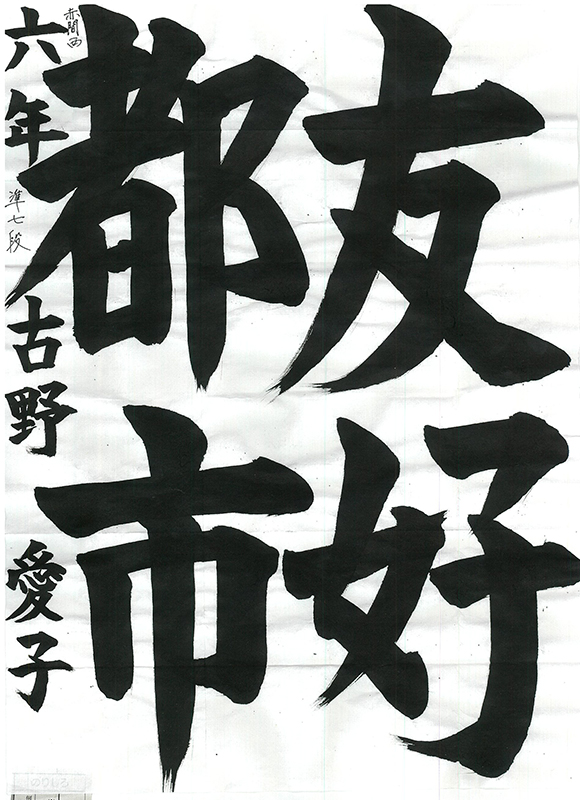 友好
都市
赤間西
六年
準七段
古野 愛子
のりしろ